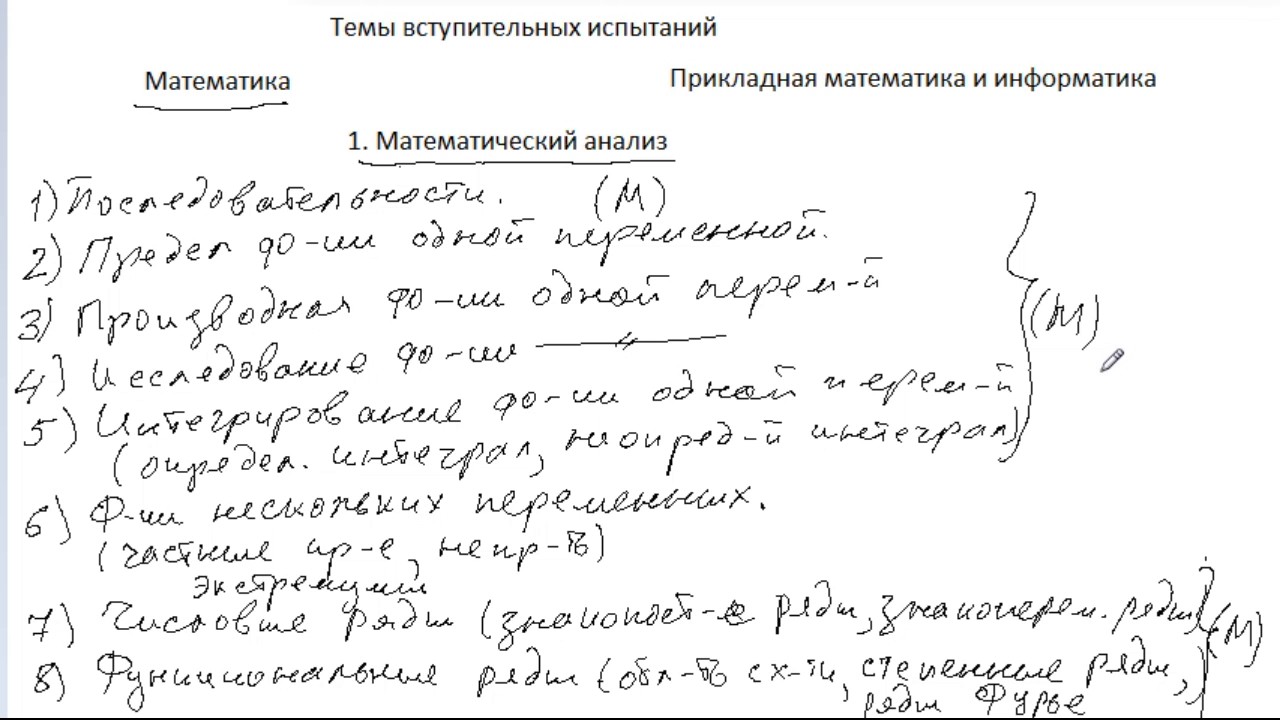 Темы вступительных испытаний
Математика Прикладная математика и информатика
1. Математический анализ
1) Последовательности. (М)
2) Предел ф-ии одной переменной.
3) Производная ф-ии одной перем-й
4) Исследование ф-ии —〃—
5) Интегрирование ф-ии одной перем-й
(определ. интеграл, неопред-й интеграл) (М)
6) Ф-ии нескольких переменных.
(частные пр-е, непр-ть)
экстремумы
7) Числовые ряды (знакопост-е ряды, знакоперем. ряды)
8) Функциональные ряды (обл-ть сх-ти, степенные ряды, (М)
ряды Фурье